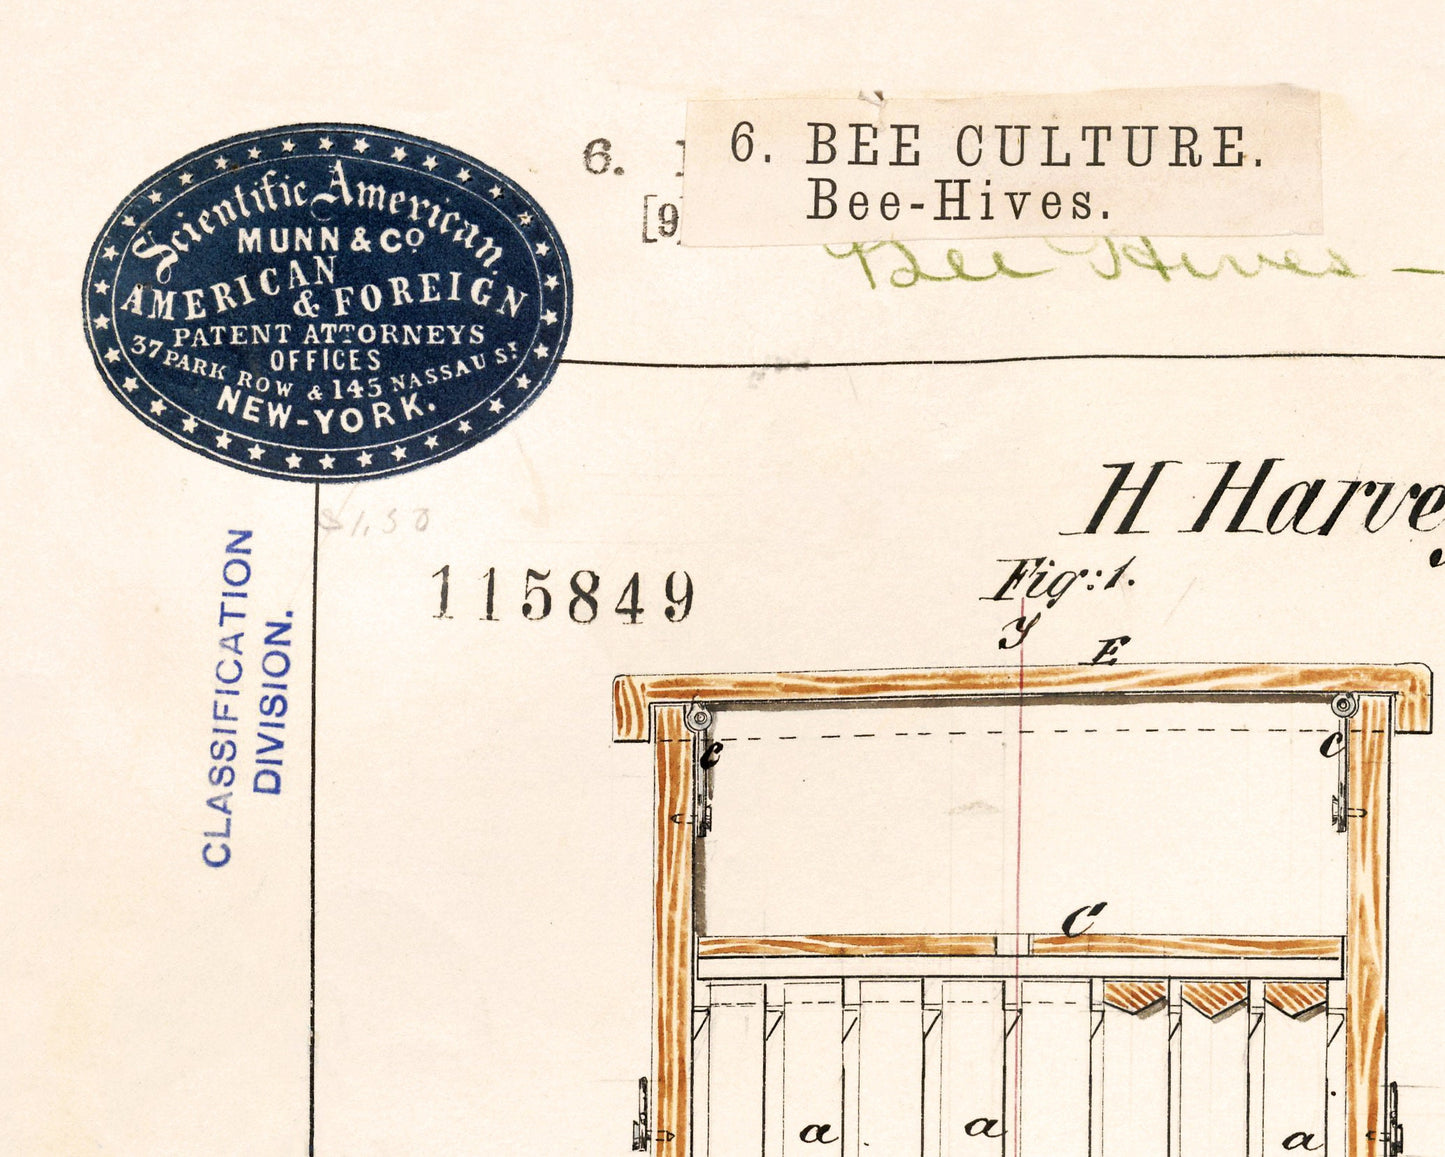 Scientific American.
MUNN & Co
AMERICAN
& FOREIGN
PATENT ATTORNEYS
OFFICES
37 PARK ROW & 145 NASSAU ST
NEW-YORK.
6.
[9]
6. BEE CULTURE.
Bee-Hives.
Bee Hives —
$1.50
CLASSIFICATION
DIVISION.
115849
H Harvey
Fig: 1.
y
E
c
c
C
a
a
a